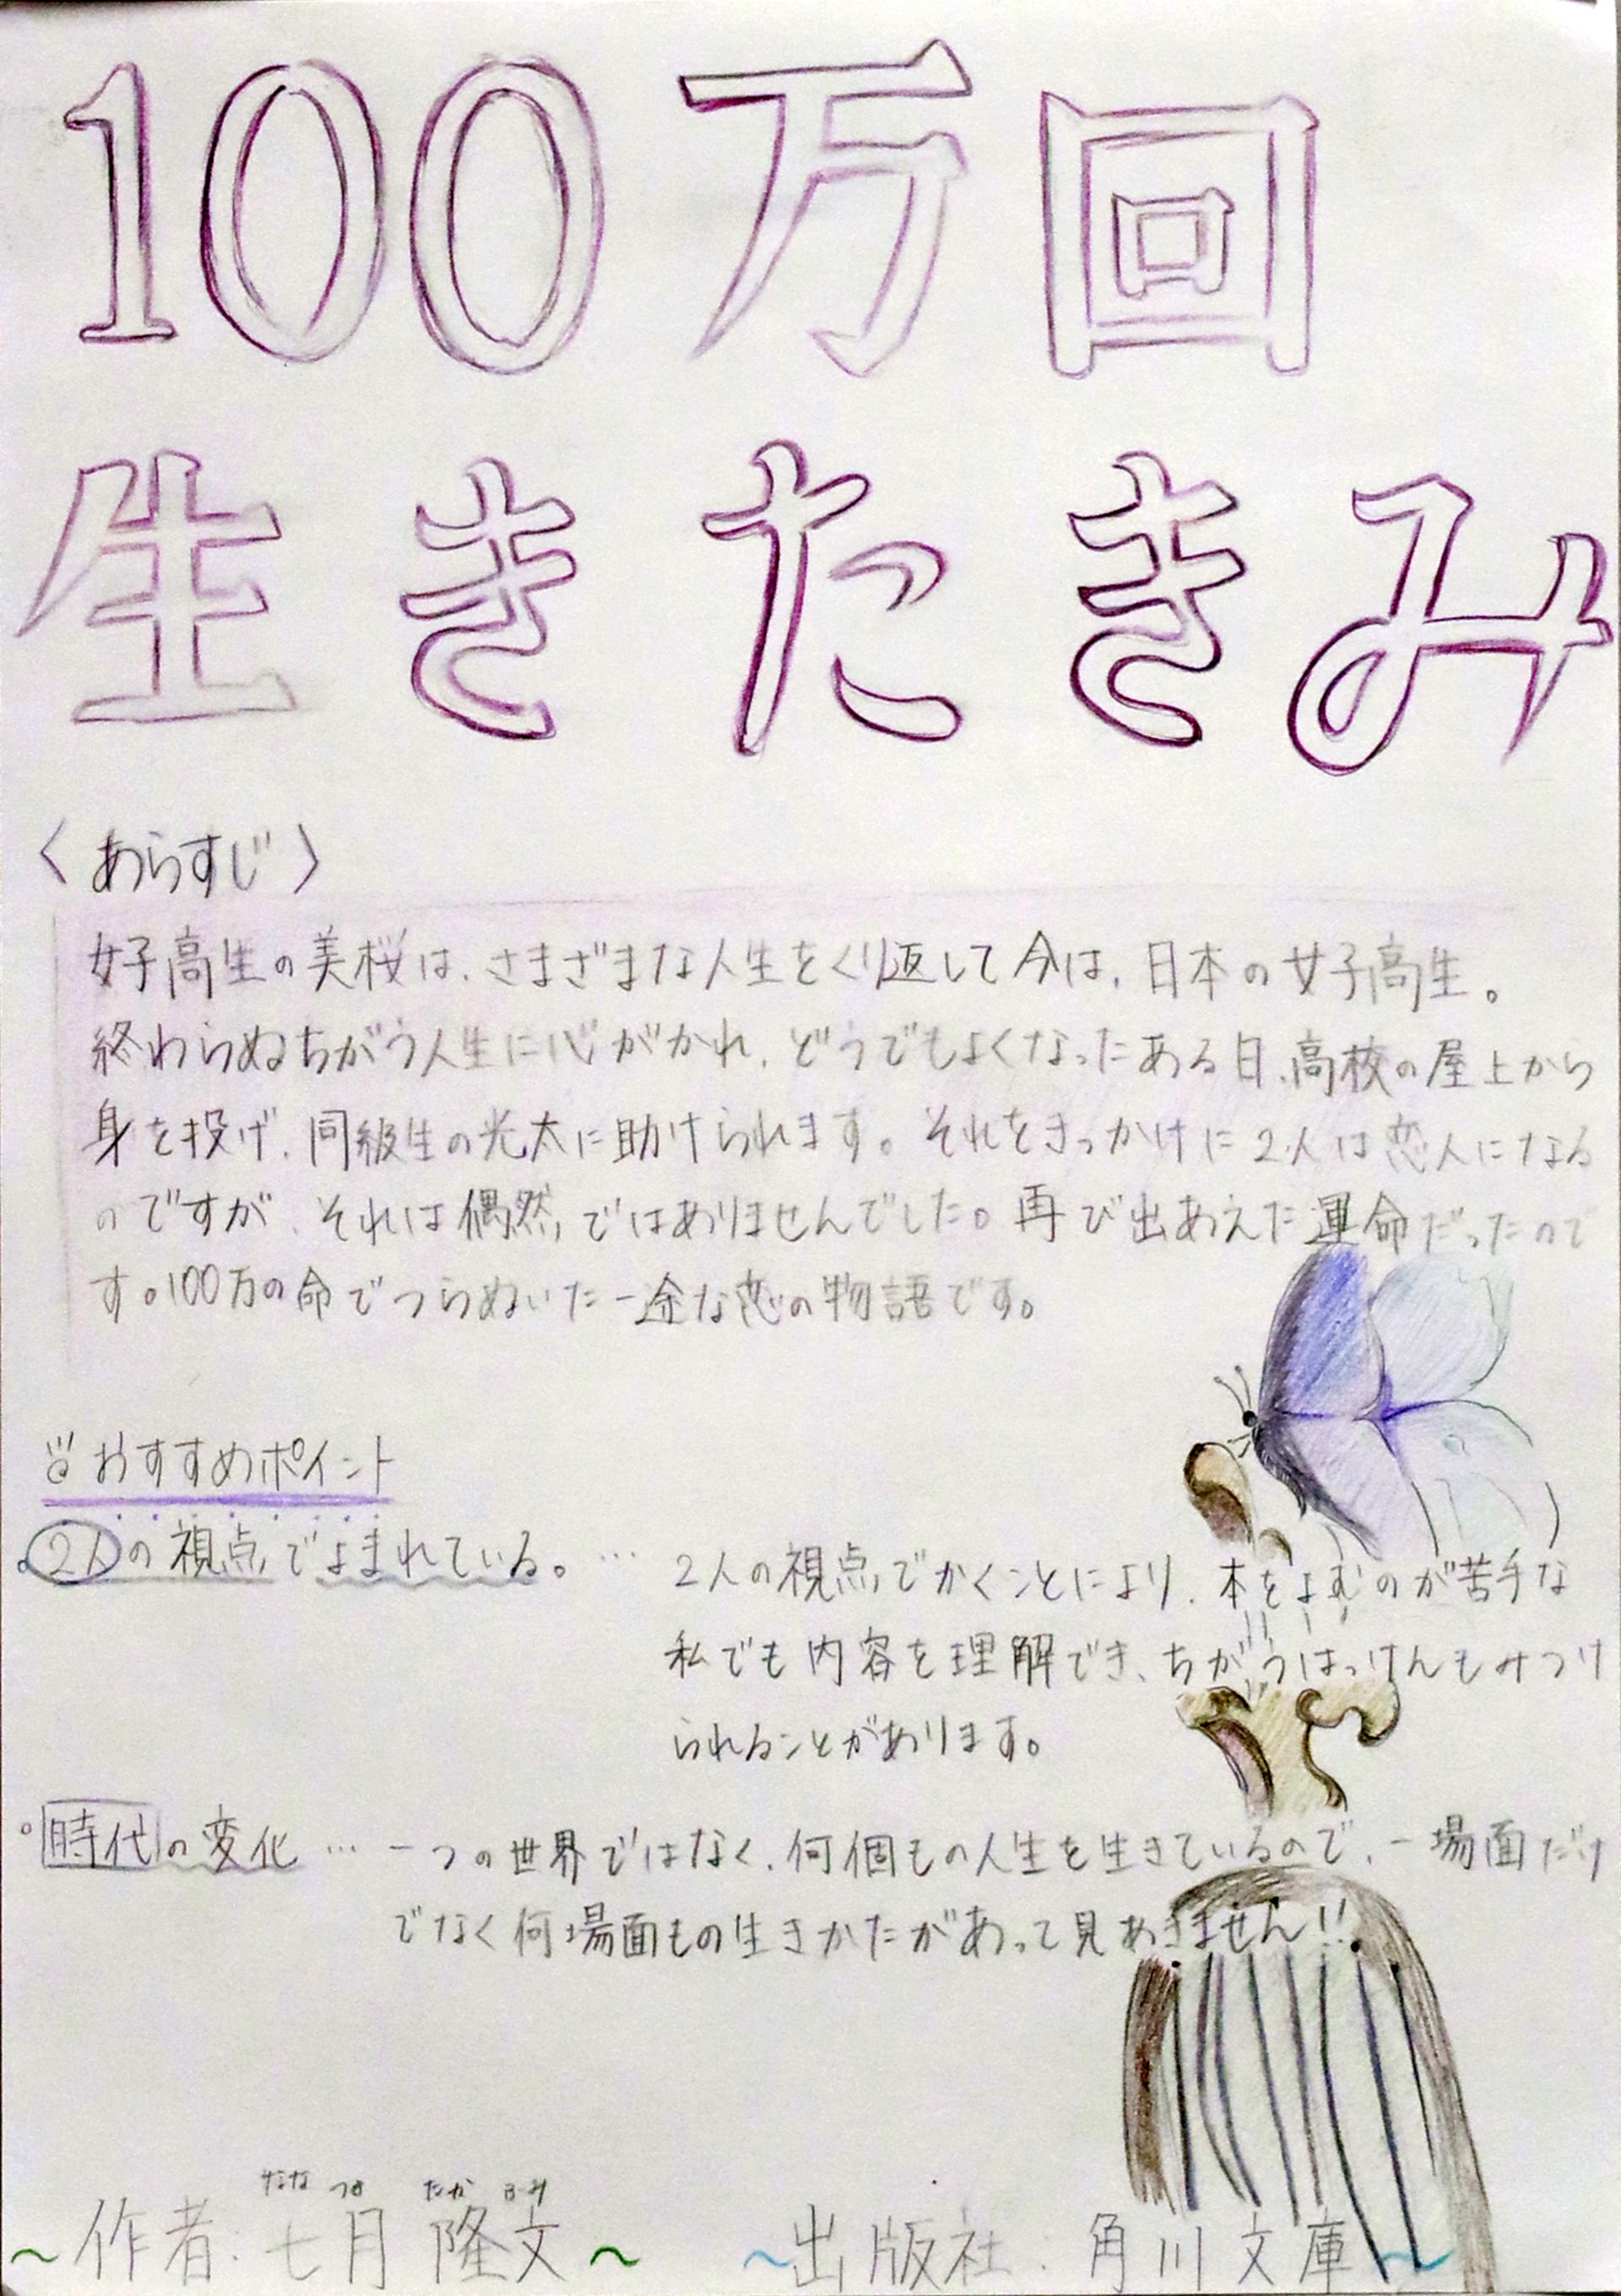 100万回
生きたきみ
〈あらすじ〉
女子高生の美桜は、さまざまな人生をくり返して今は、日本の女子高生。
終わらぬちがう人生に心がかれ、どうでもよくなったある日、高校の屋上から
身を投げ、同級生の光太に助けられます。それをきっかけに2人は恋人になる
のですが、それは偶然ではありませんでした。再び出あえた運命だったので
す。100万の命でつらぬいた一途な恋の物語です。
おすすめポイント
2人の視点でよまれている。… 2人の視点でかくことにより、本をよむのが苦手な
私でも内容を理解でき、ちがうはっけんもみつけ
られることがあります。
°時代の変化 … 一つの世界ではなく、何個もの人生を生きているので、一場面だけ
でなく何場面もの生きかたがあって見あきません!!
なな つき たか ふみ
~作者:七月 隆文~ ~出版社:角川文庫~